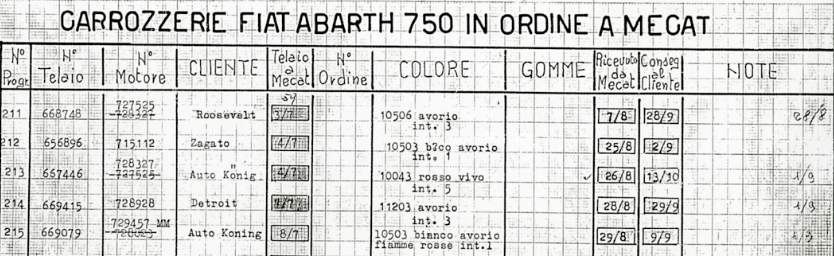 CARROZZERIE FIAT ABARTH 750 IN ORDINE A MECAT
Nº Progr. Nº Telaio Nº Motore CLIENTE Telaio a Mecat Nº Ordine COLORE GOMME Ricevuto da Mecat Conseg al Cliente NOTE
727525
211 668748 Roosevelt 3/7 10506 avorio 7/8 28/9
int. 3
212 656896 715112 Zagato 4/7 10503 b2co avorio 25/8 2/9
int. 1
728327
213 667446 727525 Auto König 4/7 10043 rosso vivo 26/8 13/10 1/9
int. 5
214 669415 728928 Detroit 11203 avorio 28/8 29/9
int. 3
729457 MM
215 669079 Auto Koning 8/7 10503 bianco avorio 29/8 9/9
fiamme rosse int.1